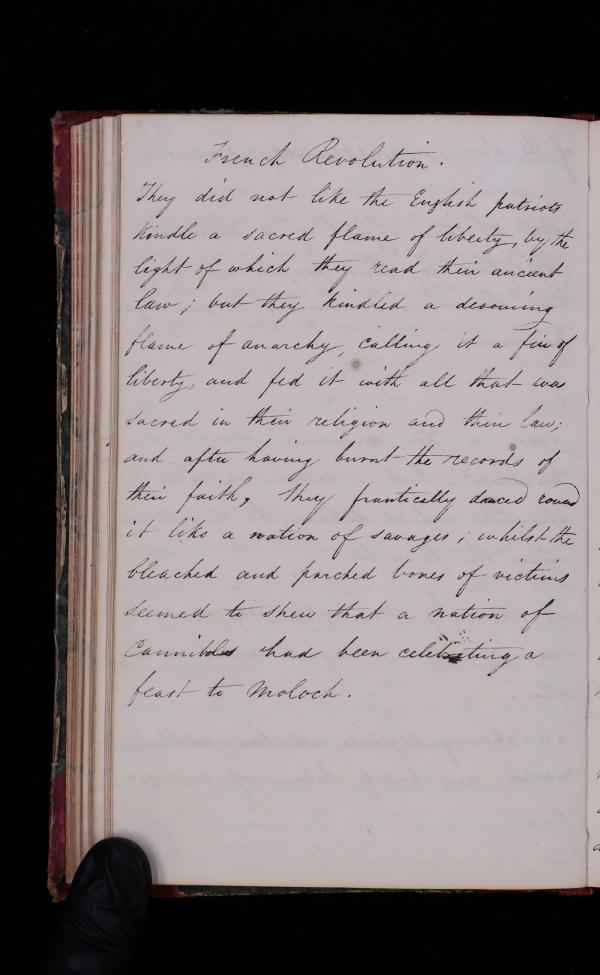 French Revolution.
They did not like the English patriots
kindle a sacred flame of liberty, by the
light of which they read their ancient
law; but they kindled a devouring
flame of anarchy, calling it a fire of
liberty, and fed it with all that was
sacred in their religion and their law;
and after having burnt the records of
their faith, they frantically danced round
it like a nation of savages; whilst the
bleached and parched bones of victims
seemed to shew that a nation of
Cannibles had been celebrating a
feast to Moloch.